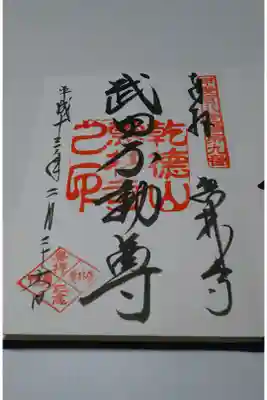 奉拝
恵林寺
武田不動尊
乾徳山
恵林寺
之印
平成十三年二月二十六日